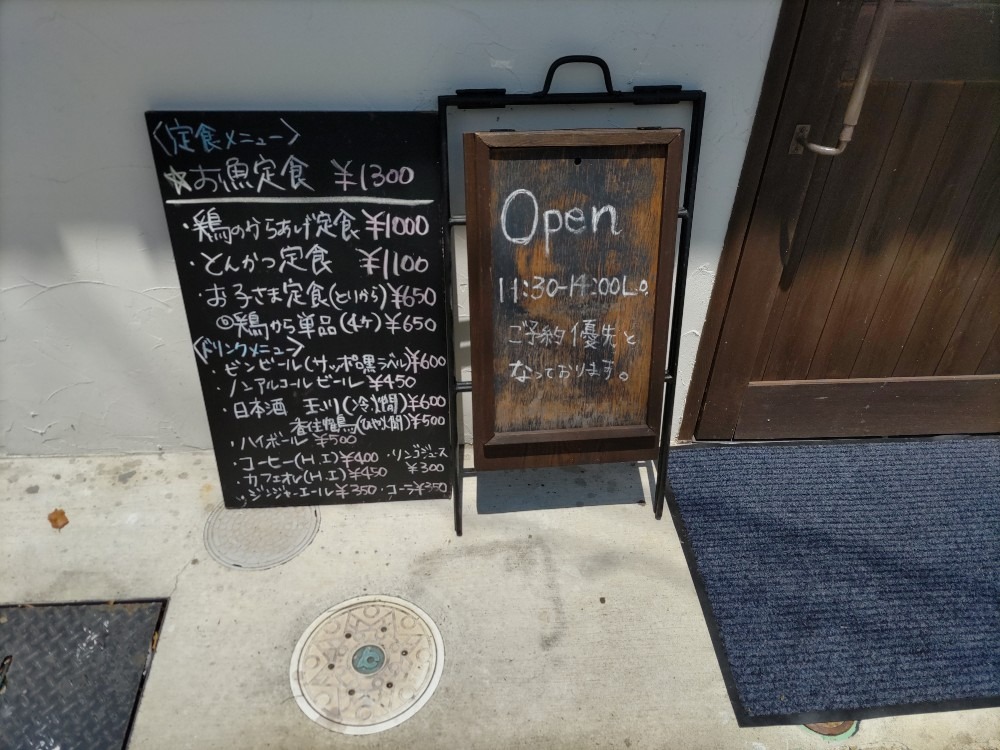 〈定食メニュー〉
☆お魚定食 ¥1300
・鶏のからあげ定食 ¥1000
・とんかつ定食 ¥1100
・お子さま定食(とりから)¥650
◎鶏から単品(4ケ)¥650
〈ドリンクメニュー〉
・ビンビール(サッポロ黒ラベル)¥600
・ノンアルコールビール ¥450
・日本酒 玉川(冷、燗)¥600
香住鶴(ひや、燗)¥500
・ハイボール ¥500
・コーヒー(H.I)¥400 ・リンゴジュース
¥300
・カフェオレ(H.I)¥450
・ジンジャーエール¥350・コーラ¥350
Open
11:30-14:00L.O.
ご予約優先と
なっております。